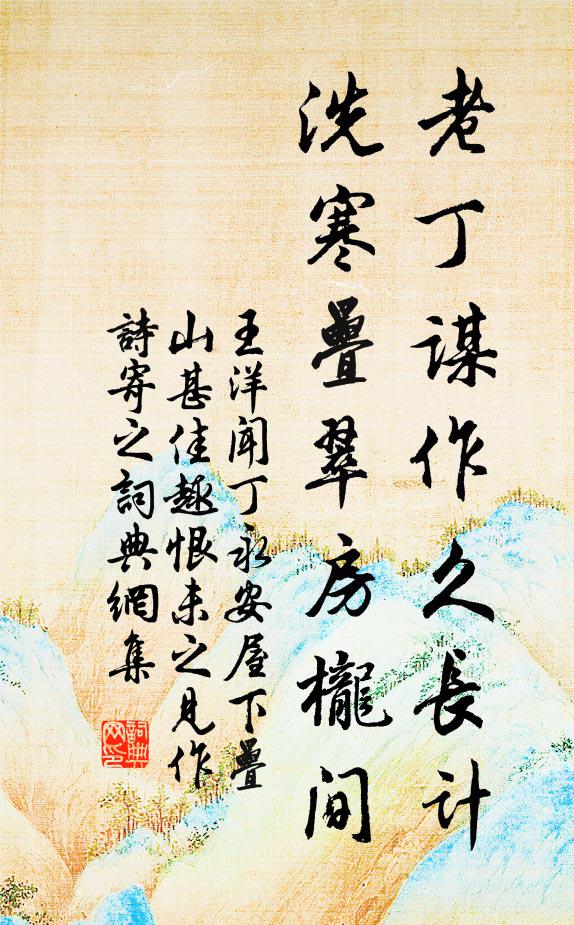 老丁谋作久長计
洗寒疊翠房櫳间
王洋闻丁永安屋下疊
山甚佳趣恨未之见作
詩寄之詞典網集
詞典
网印